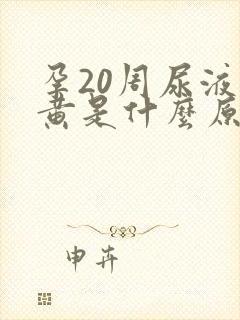 孕20周尿液
黄是什麼原
申卉